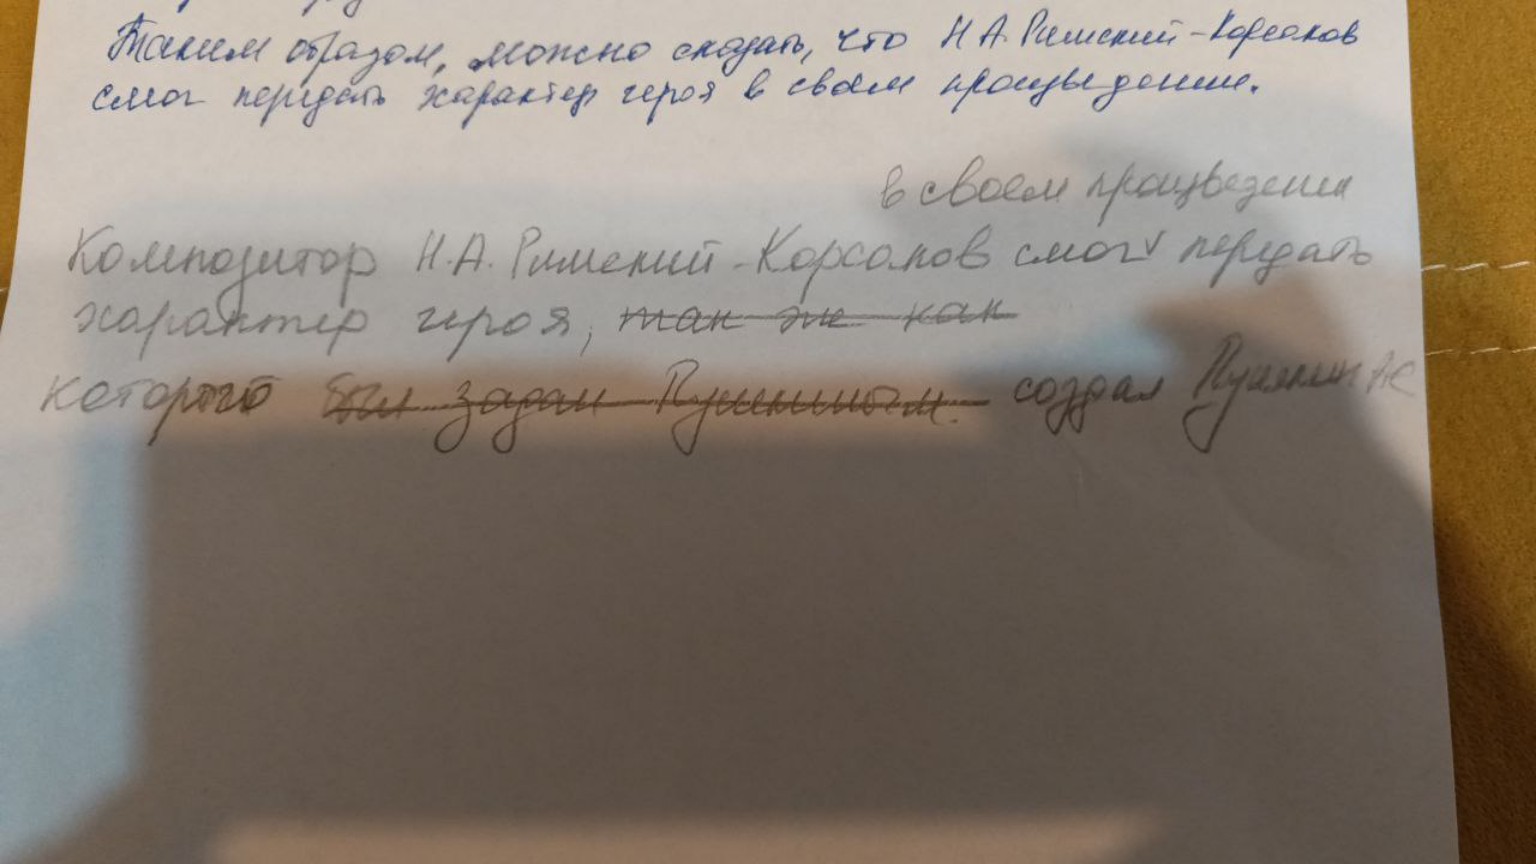 Таким образом, можно сказать, что Н.А. Римский-Корсаков
смог передать характер героя в своём произведении.
в своём произведении
Композитор Н.А. Римский-Корсаков смог передать
характер героя, так же как
которого был задан Пушкиным. создал Пушкин АС